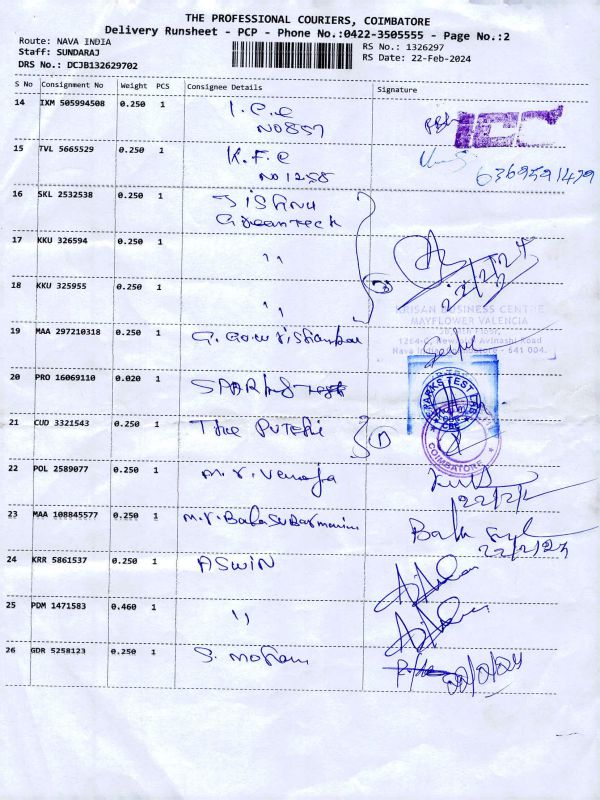 THE PROFESSIONAL COURIERS, COIMBATORE
Delivery Runsheet - PCP - Phone No.:0422-3505555 - Page No.:2
Route: NAVA INDIA
Staff: SUNDARAJ
DRS No.: DCJB132629702
RS No.: 1326297
RS Date: 22-Feb-2024
S No Consignment No Weight PCS Consignee Details Signature
14 IXM 505994508 0.250 1
NO 857
15 TVL 5665529 0.250 1 K.F.C
NO 1258
6369591479
16 SKL 2532538 0.250 1 Jishnu
Greentech
17 KKU 326594 0.250 1 ,,
22/2/24
18 KKU 325955 0.250 1 ,,
KRISAN BUSINESS CENTRE
MAYFLOWER VALENCIA
Avinashi Road
Nava India 641 004.
19 MAA 297210318 0.250 1 G. Gowrishankar
20 PRO 16069110 0.020 1 SPARKS Test
SPARKS TEST LAB
CBE
21 CUD 3321543 0.250 1 The
COIMBATORE
22 POL 2589077 0.250 1 M.r. Vanaja
22/2/2
23 MAA 108845577 0.250 1 M.r. Bala Subarmanim
Bala
24 KRR 5861537 0.250 1 ASWIN
25 PDM 1471583 0.460 1 ,,
26 GDR 5258123 0.250 1 S. Mohan